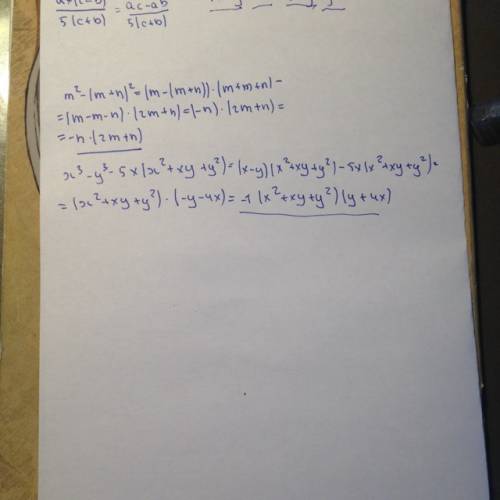 5(c+b) = ac-ab / 5(c+b)
m²-(m+n)²=(m-(m+n))·(m+m+n)=
=(m-m-n)·(2m+n)=(-n)·(2m+n)=
=-n·(2m+n)
x³-y³-5x(x²+xy+y²)=(x-y)(x²+xy+y²)-5x(x²+xy+y²)=
=(x²+xy+y²)·(-y-4x)=-1(x²+xy+y²)(y+4x)